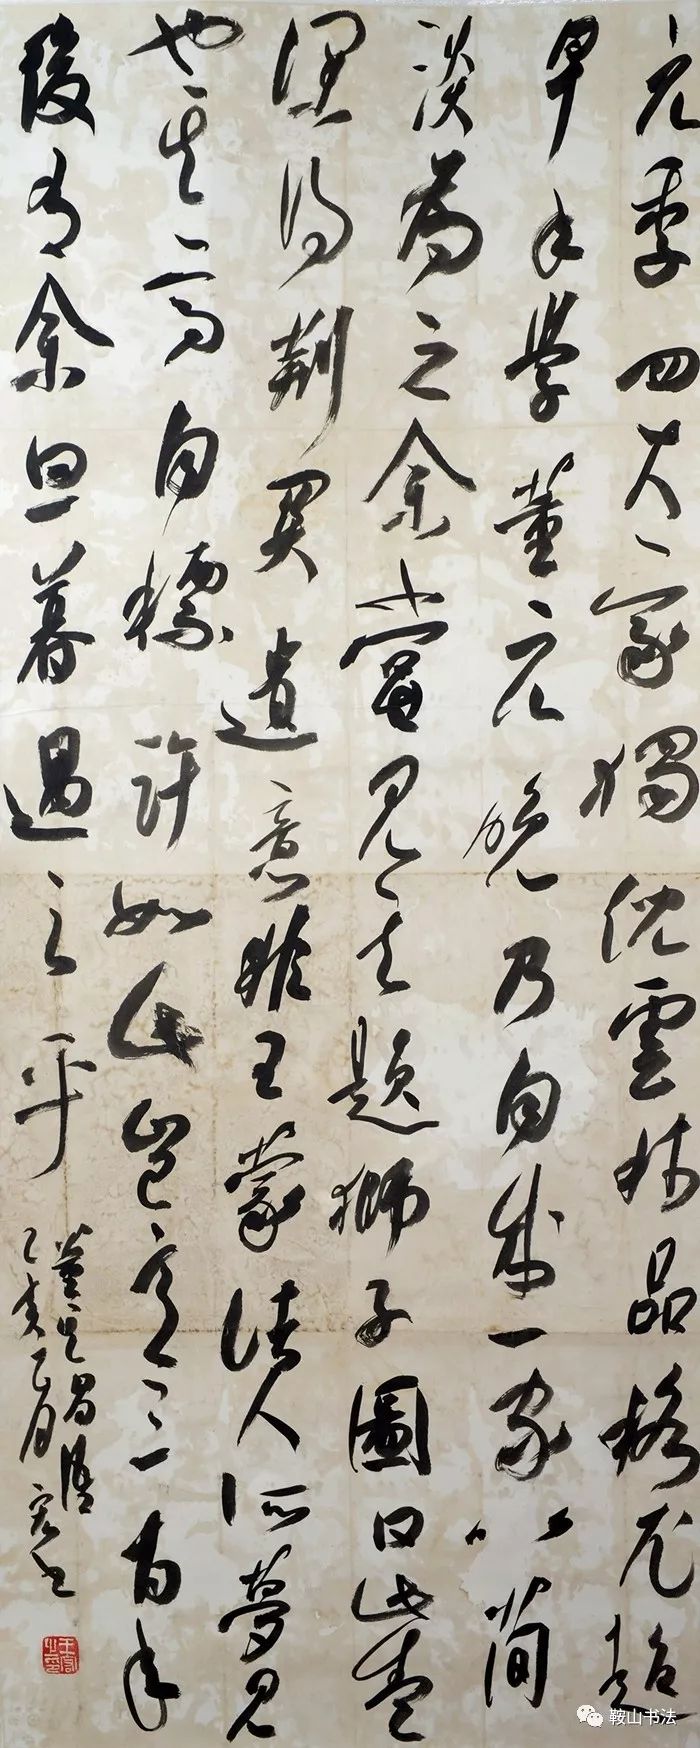 元季四大家獨倪雲林品格尤超
早年學董元晚乃自成一家以簡
淡為之余嘗見其題獅子圖曰此畫
深得荊関遺意非王蒙諸人所夢見
也其高自標許如此豈意三百年
後有余旦暮遇之乎
董其昌語
乙亥
鞍山书法